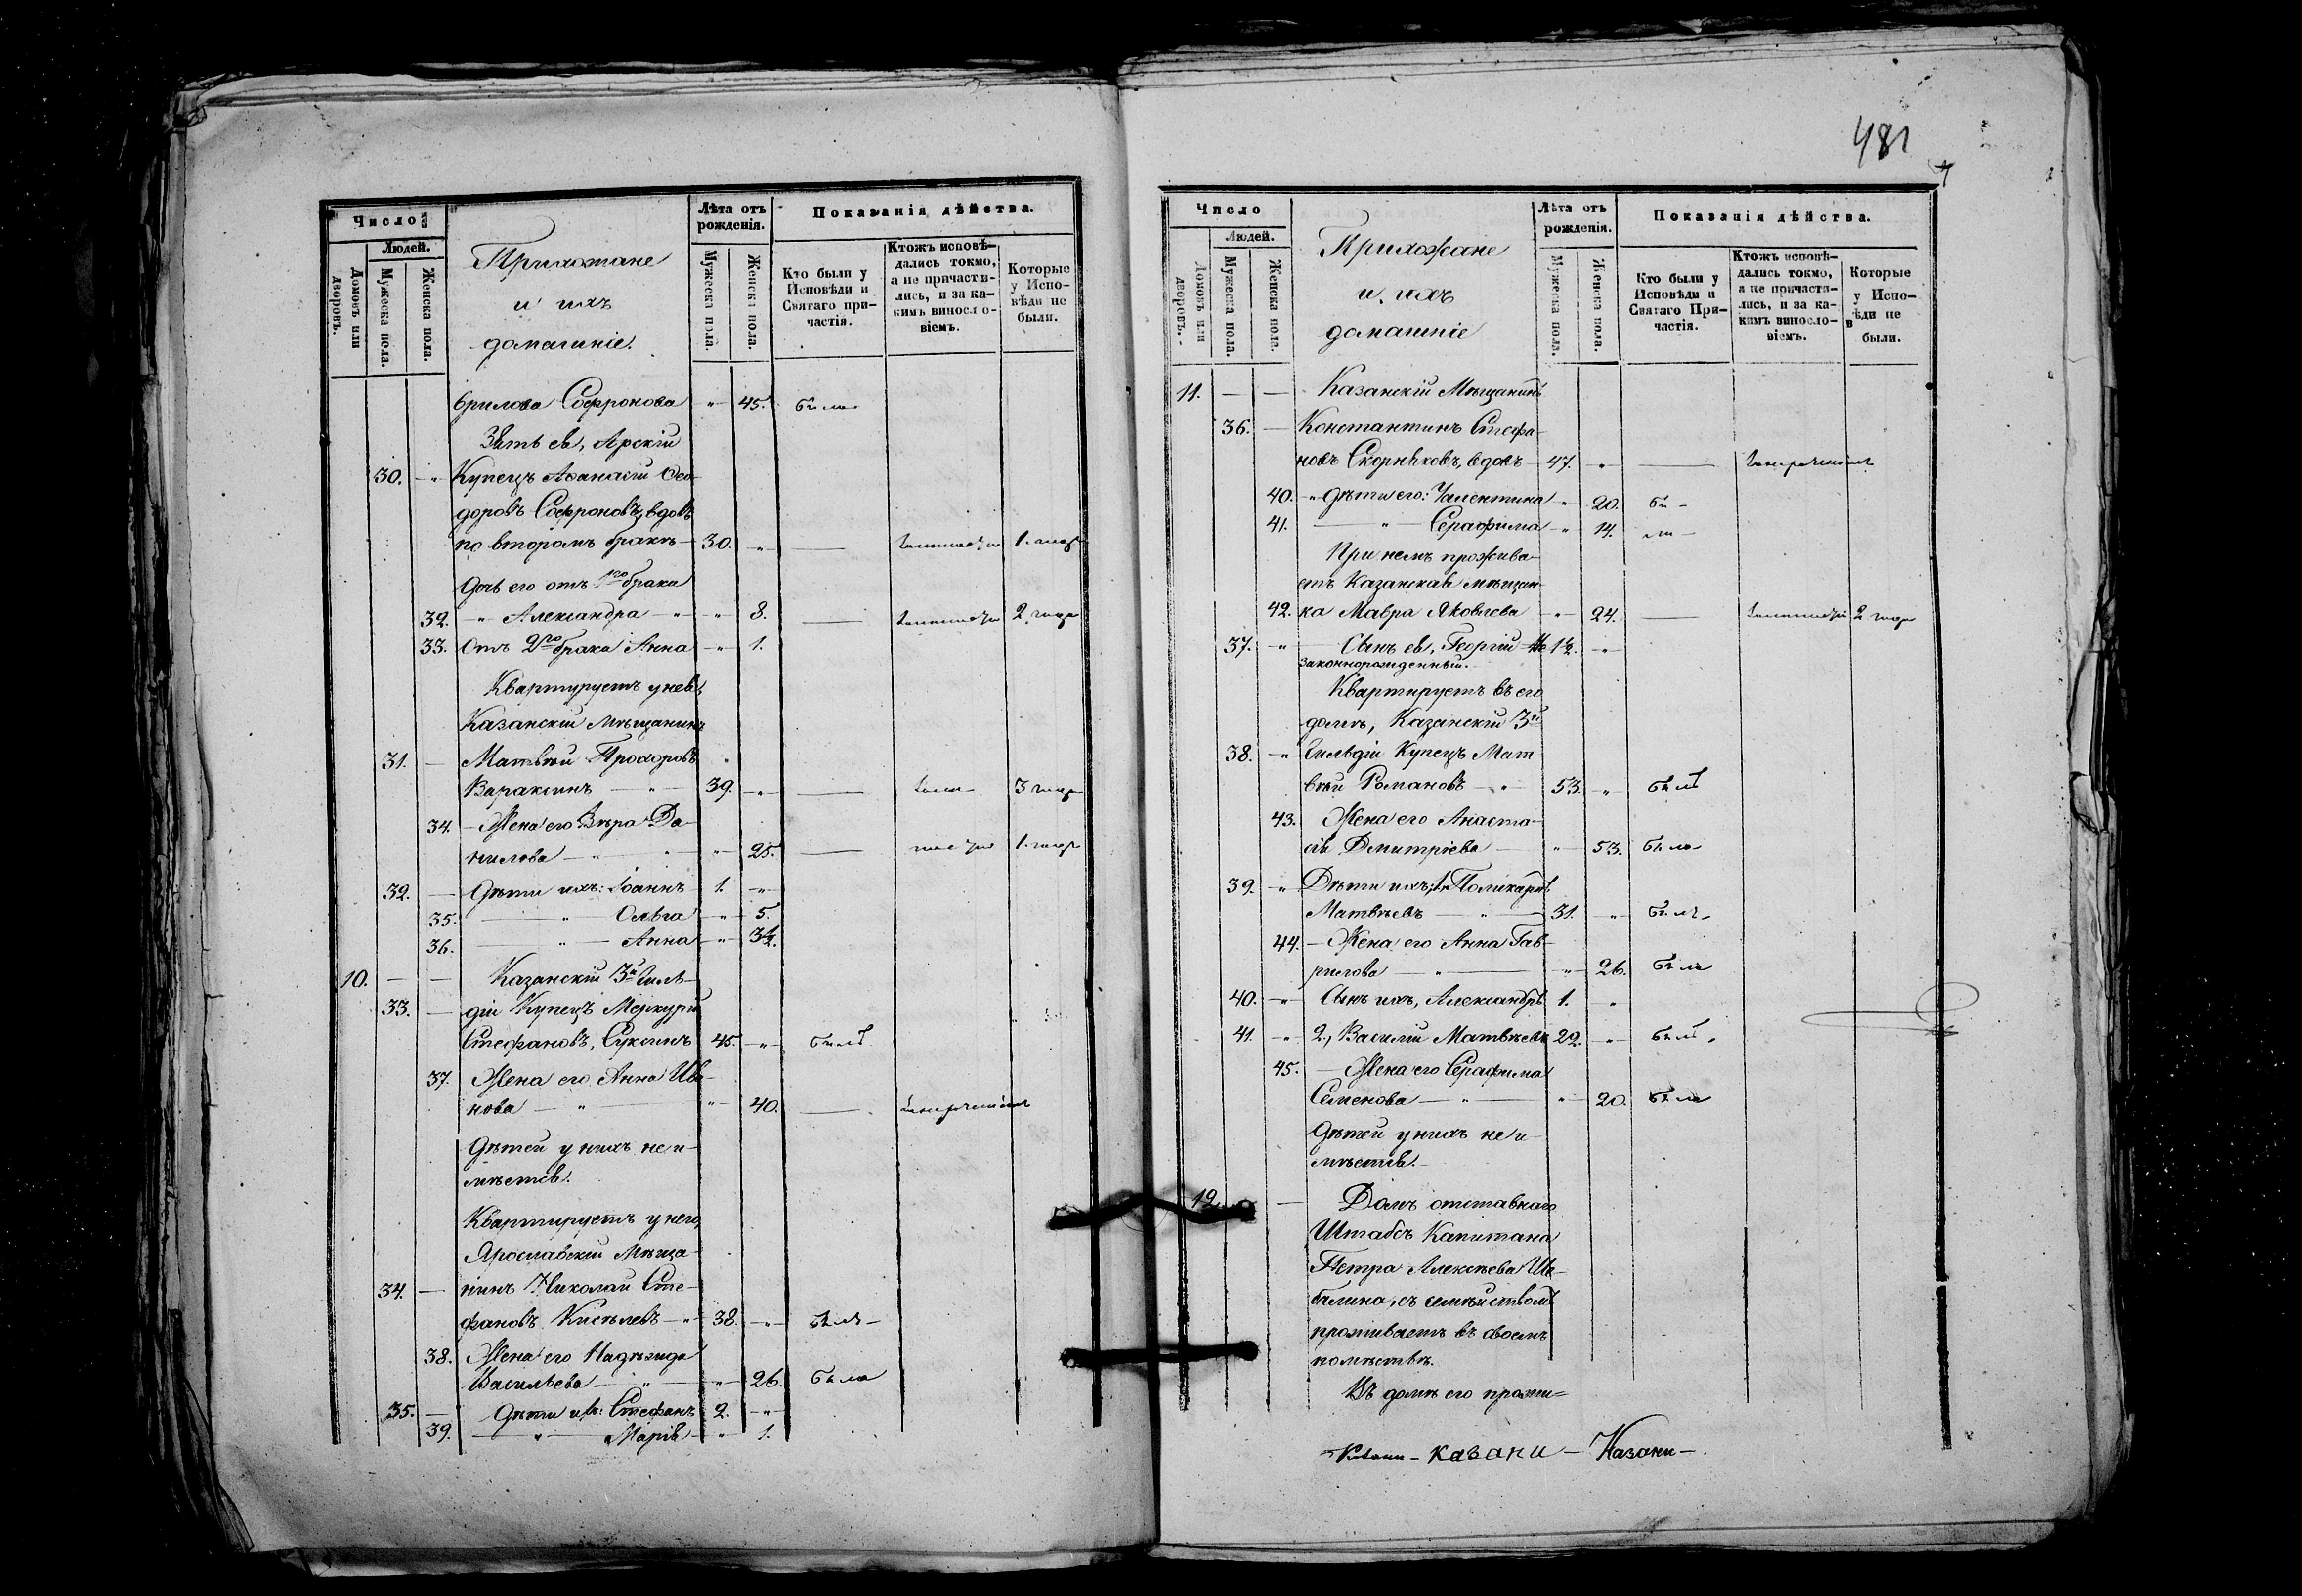 481
Число
Людей.
Домовъ или дворовъ.
Мужеска пола.
Женска пола.
Прихожане
и ихъ
домашніе.
Лѣта отъ
рожденія.
Мужеска пола.
Женска пола.
Показанія дѣйства.
Кто были у
Исповѣди и
Святаго при-
частія.
Ктожъ исповѣ-
дались токмо,
а не причасти-
лись, и за ка-
кимъ виносло-
віемъ.
Которые
у Испо-
вѣди не
были.
врилова Софронова " 45. была
Зять ея, Арскій
30. " Купецъ Аѳанасій Ѳео-
доровъ Софроновъ, вдовъ
по второмъ бракѣ 30. "
Дочь его отъ 1го брака
32. " Александра " " 8.
33. Отъ 2го брака Анна " 1.
Квартируетъ у нея
Казанскій мѣщанинъ
31. — Матвѣй Прохоровъ
Вараксинъ " 39. "
34. Жена его Вѣра Да-
нилова " " 25.
32. — Дѣти ихъ: Іоаннъ 1. "
35. " Ольга " 5.
36. " Анна "
10. — — Казанскій 3й Гиль-
33. — діи Купецъ Меркурій
Стефановъ, Суксинъ 45. " былъ
37. Жена его Анна Ива-
нова " " 40.
Дѣтей у нихъ не и-
мѣется.
Квартируетъ у него,
Ярославскій Мѣща-
34. — нинъ Николай Сте-
фановъ Киселевъ " 38. " былъ
38. Жена его Надежда
Васильева " " 26. была
35. — Дѣти ихъ: Стефанъ 2. "
39. " Марія " 1.
Число
Людей.
Домовъ или дворовъ.
Мужеска пола.
Женска пола.
Прихожане
и ихъ
домашніе
Лѣта отъ
рожденія.
Мужеска пола.
Женска пола.
Показанія дѣйства.
Кто были у
Исповѣди и
Святаго При-
частія.
Ктожъ исповѣ-
дались токмо,
а не причасти-
лись, и за ка-
кимъ виносло-
віемъ.
Которые
у Испо-
вѣди не
были.
11. — — Казанскій Мѣщанинъ
36. — Константинъ Стефа-
новъ Скорняковъ, вдовъ 47. " —
40. " Дѣти его: Валентина " 20. бы-
41. " Серафима " 14. ли
При немъ прожива-
етъ Казанская мѣщан-
42. ка Мавра Яковлева " 24. —
37. " Сынъ ея, Георгій не
законнорожденный.
Квартируетъ въ его
домѣ, Казанскій 3й
38. " Гильдіи Купецъ Мат
вѣй Романовъ " 53. " былъ
43. Жена его Анаста-
сія Дмитріева " 53. была
39. " Дѣти ихъ: 1, Поликарпъ
Матвѣевъ " 31. " былъ
44. Жена его Анна Гав-
рилова " " 26. была
40. " Сынъ ихъ, Александръ 1. "
41. " 2, Василій Матвѣевъ 22. " былъ
45. Жена его Серафима
Семенова " " 20. была
Дѣтей у нихъ не и-
мѣется.
12. — Домъ отставнаго
Штабсъ Капитана
Петра Алексѣева Ша-
балина, съ семѣйствомъ
проживаетъ въ своемъ
помѣстьѣ.
Въ домѣ его прожи=
Казани — Казани —